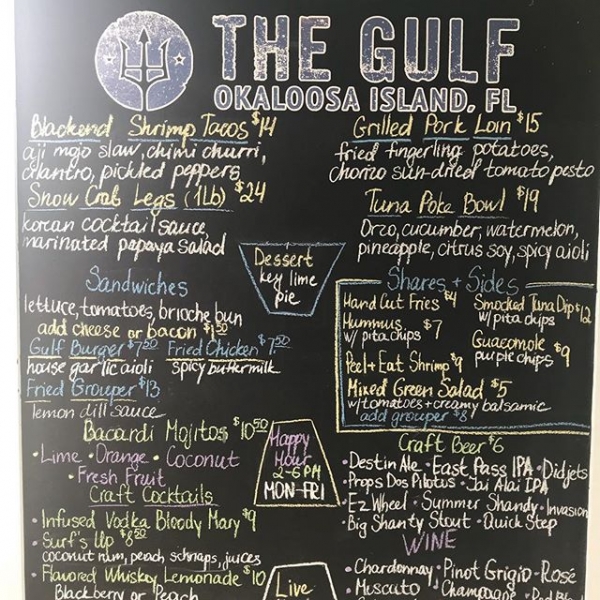 THE GULF
OKALOOSA ISLAND, FL
Blackend Shrimp Tacos $14
aji mojo slaw, chimi churri,
cilantro, pickled peppers
Snow Crab Legs (1Lb) $24
korean cocktail sauce,
marinated papaya salad
Grilled Pork Loin $15
fried fingerling potatoes,
chorizo sun-dried tomato pesto
Tuna Poke Bowl $19
Orzo, cucumber, watermelon,
pineapple, citrus soy, spicy aioli
Dessert
key lime
pie
Sandwiches
lettuce, tomatoes, brioche bun
add cheese or bacon $1.50
Gulf Burger $7.50 Fried Chicken $7.50
house garlic aioli spicy buttermilk
Fried Grouper $13
lemon dill sauce
Shares + Sides
Hand Cut Fries $4
Hummus $7
w/ pita chips
Peel + Eat Shrimp $9
Smoked Tuna Dip $12
w/ pita chips
Guacomole $9
purple chips
Mixed Green Salad $5
w/ tomatoes + creamy balsamic
add grouper $8
Bacardi Mojitos $10.50
• Lime • Orange • Coconut
• Fresh Fruit
Craft Cocktails
• Infused Vodka Bloody Mary $9
• Surf's Up $8.50
coconut rum, peach schnaps, juices
• Flavored Whiskey Lemonade $10
Blackberry or Peach
Happy
Hour
2-6 PM
MON-FRI
Live
Craft Beer $6
• Destin Ale • East Pass IPA • Didjets
• Props Dos Pilotos • Jai Alai IPA
• Ez Wheel • Summer Shandy • Invasion
• Big Shanty Stout • Quick Step
WINE
• Chardonnay • Pinot Grigio • Rosé
• Muscato • Champagne